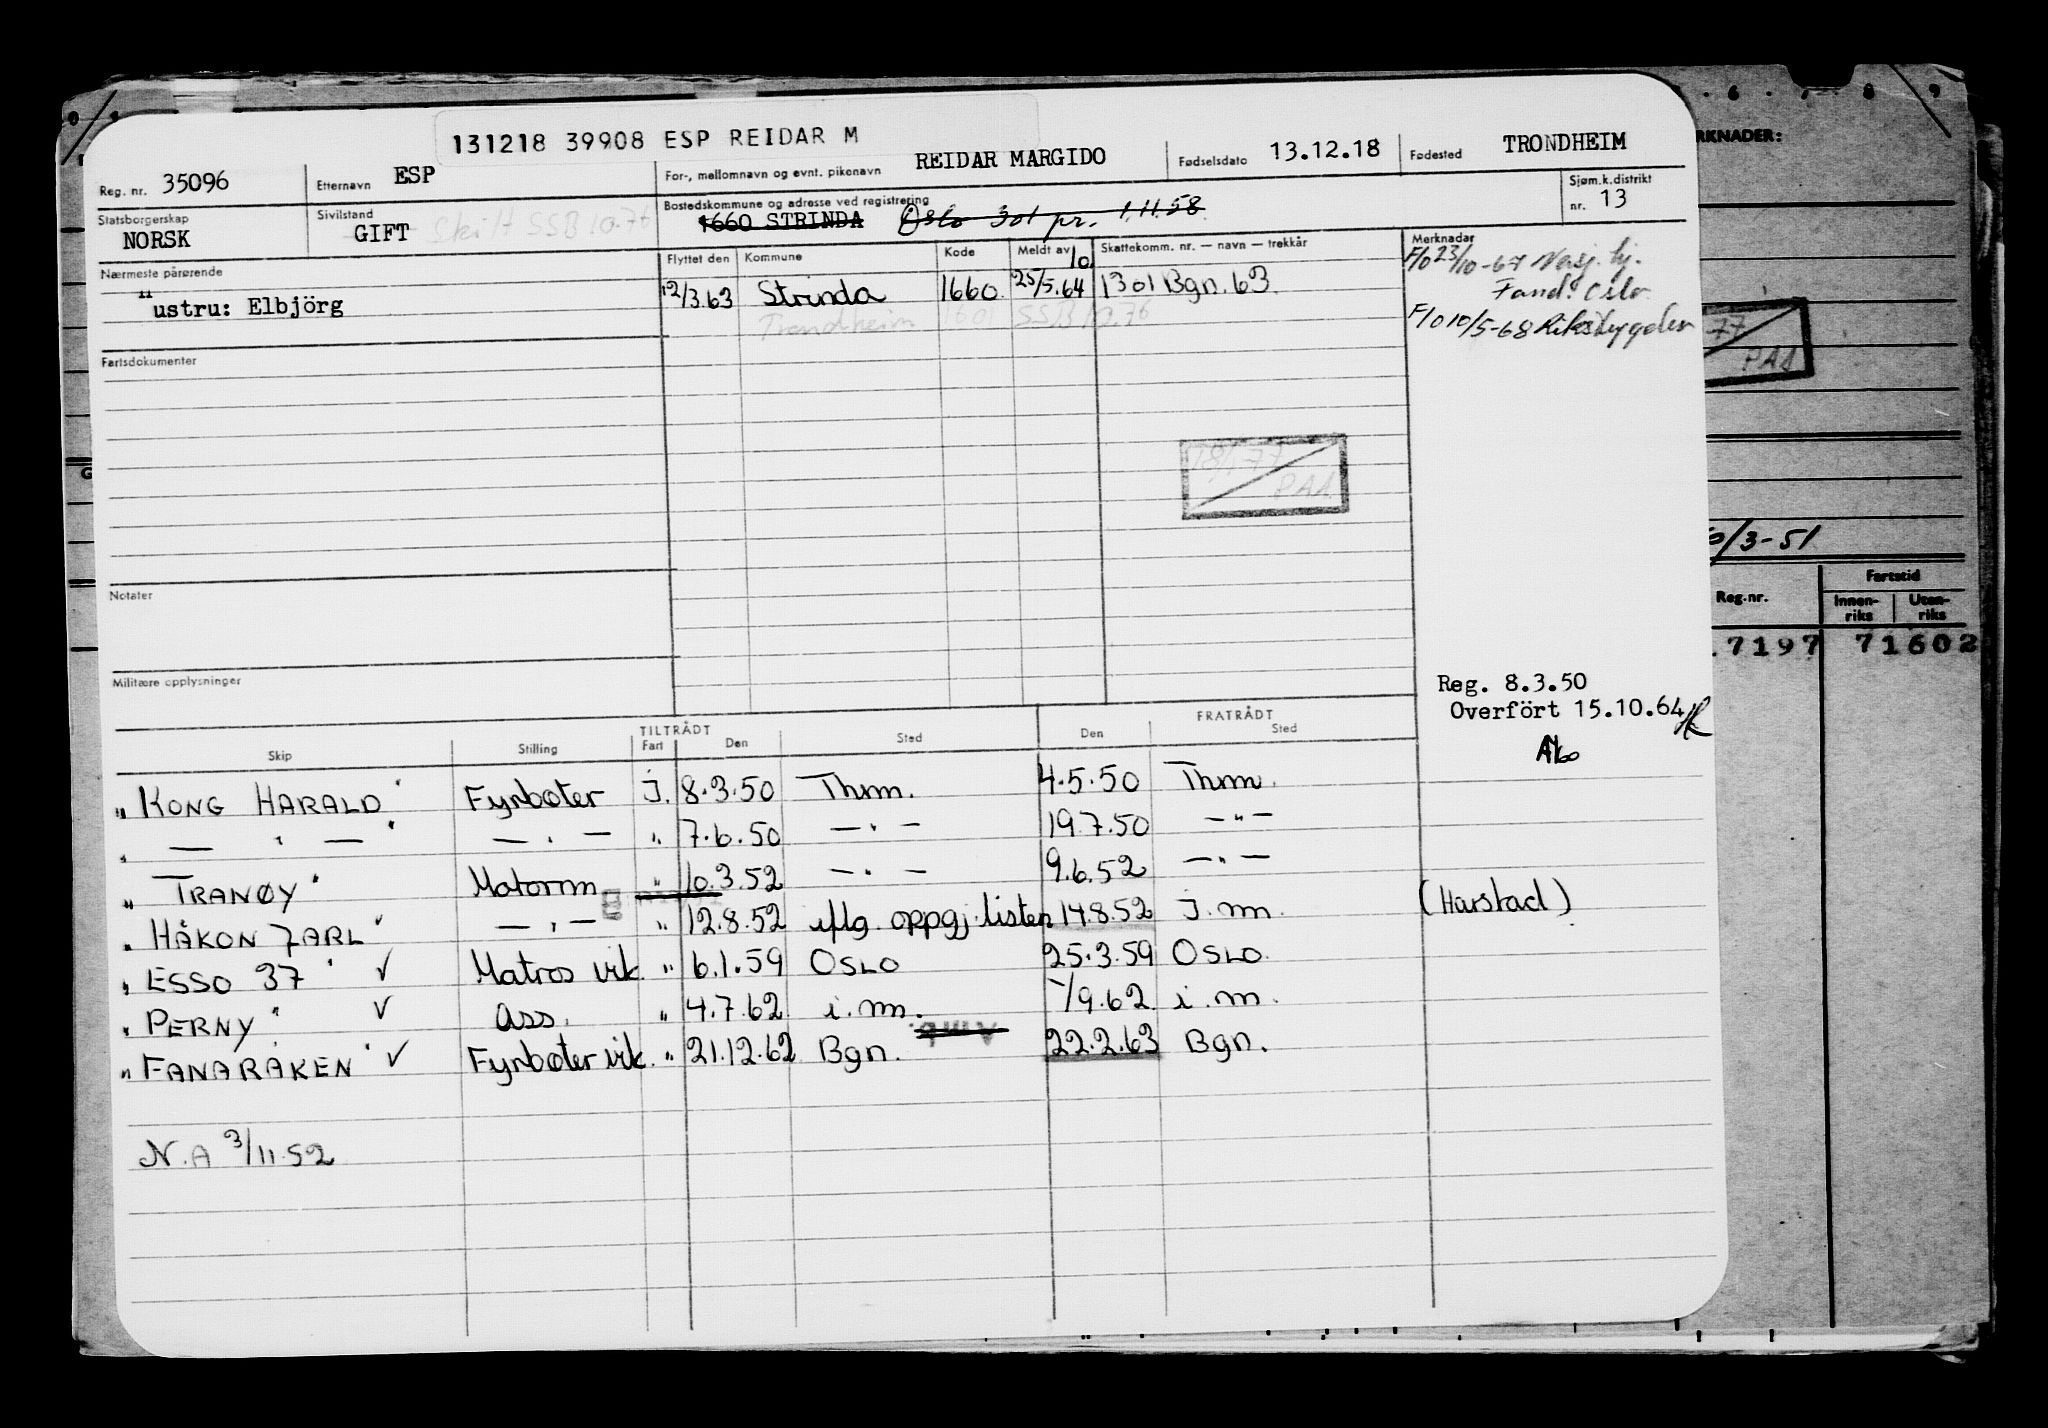 131218 39908 ESP REIDAR M
Reg. nr. 35096 Etternavn ESP For-, mellomnavn og evnt. pikenavn REIDAR MARGIDO Fødselsdato 13.12.18 Fødested TRONDHEIM
Statsborgerskap NORSK Sivilstand GIFT Skilt SSB 10.76 Bostedskommune og adresse ved registrering 1660 STRINDA Oslo 301 pr. 1.11.58 Sjøm.k.distrikt nr. 13
Nærmeste pårørende Flyttet den Kommune Kode Meldt av Skattekomm. nr. — navn — trekkår Merknader
"ustru: Elbjörg 12/3.63 Strinda 1660 25/10.5.64 1301 Bgn. 63
Trondheim 1601 SSB 10.76
F/o 23/10-67
Oslo
F/o 10/5-68 Riksbygden
Fartsdokumenter
18/1-77
PAA
Notater
Militære opplysninger
Reg. 8.3.50
Overfört 15.10.64
TILTRÅDT FRATRÅDT
Skip Stilling Fart Den Sted Den Sted
"KONG HARALD" Fyrbøter J. 8.3.50 Thm. 4.5.50 Thm.
" — " — " — " — " 7.6.50 — " — 19.7.50 — " —
" TRANØY" Matorm " 10.3.52 — " — 9.6.52 — " —
" HÅKON JARL" — " — " 12.8.52 iflg. oppgj. listen 14.8.52 J. m. (Harstad)
" ESSO 37" ✓ Matros vik. " 6.1.59 OSLO 25.3.59 OSLO.
" PERNY" ✓ Ass. " 4.7.62 i. m. -/9.62 i. m.
" FANARÅKEN" ✓ Fyrbøter vik. " 21.12.62 Bgn. 22.2.63 Bgn.
N.A 3/11.52
RKNADER:
6 7 8 9
77
PAA
/3-51
Reg.nr. Fartstid
Innen-riks Uten-riks
7197 71602